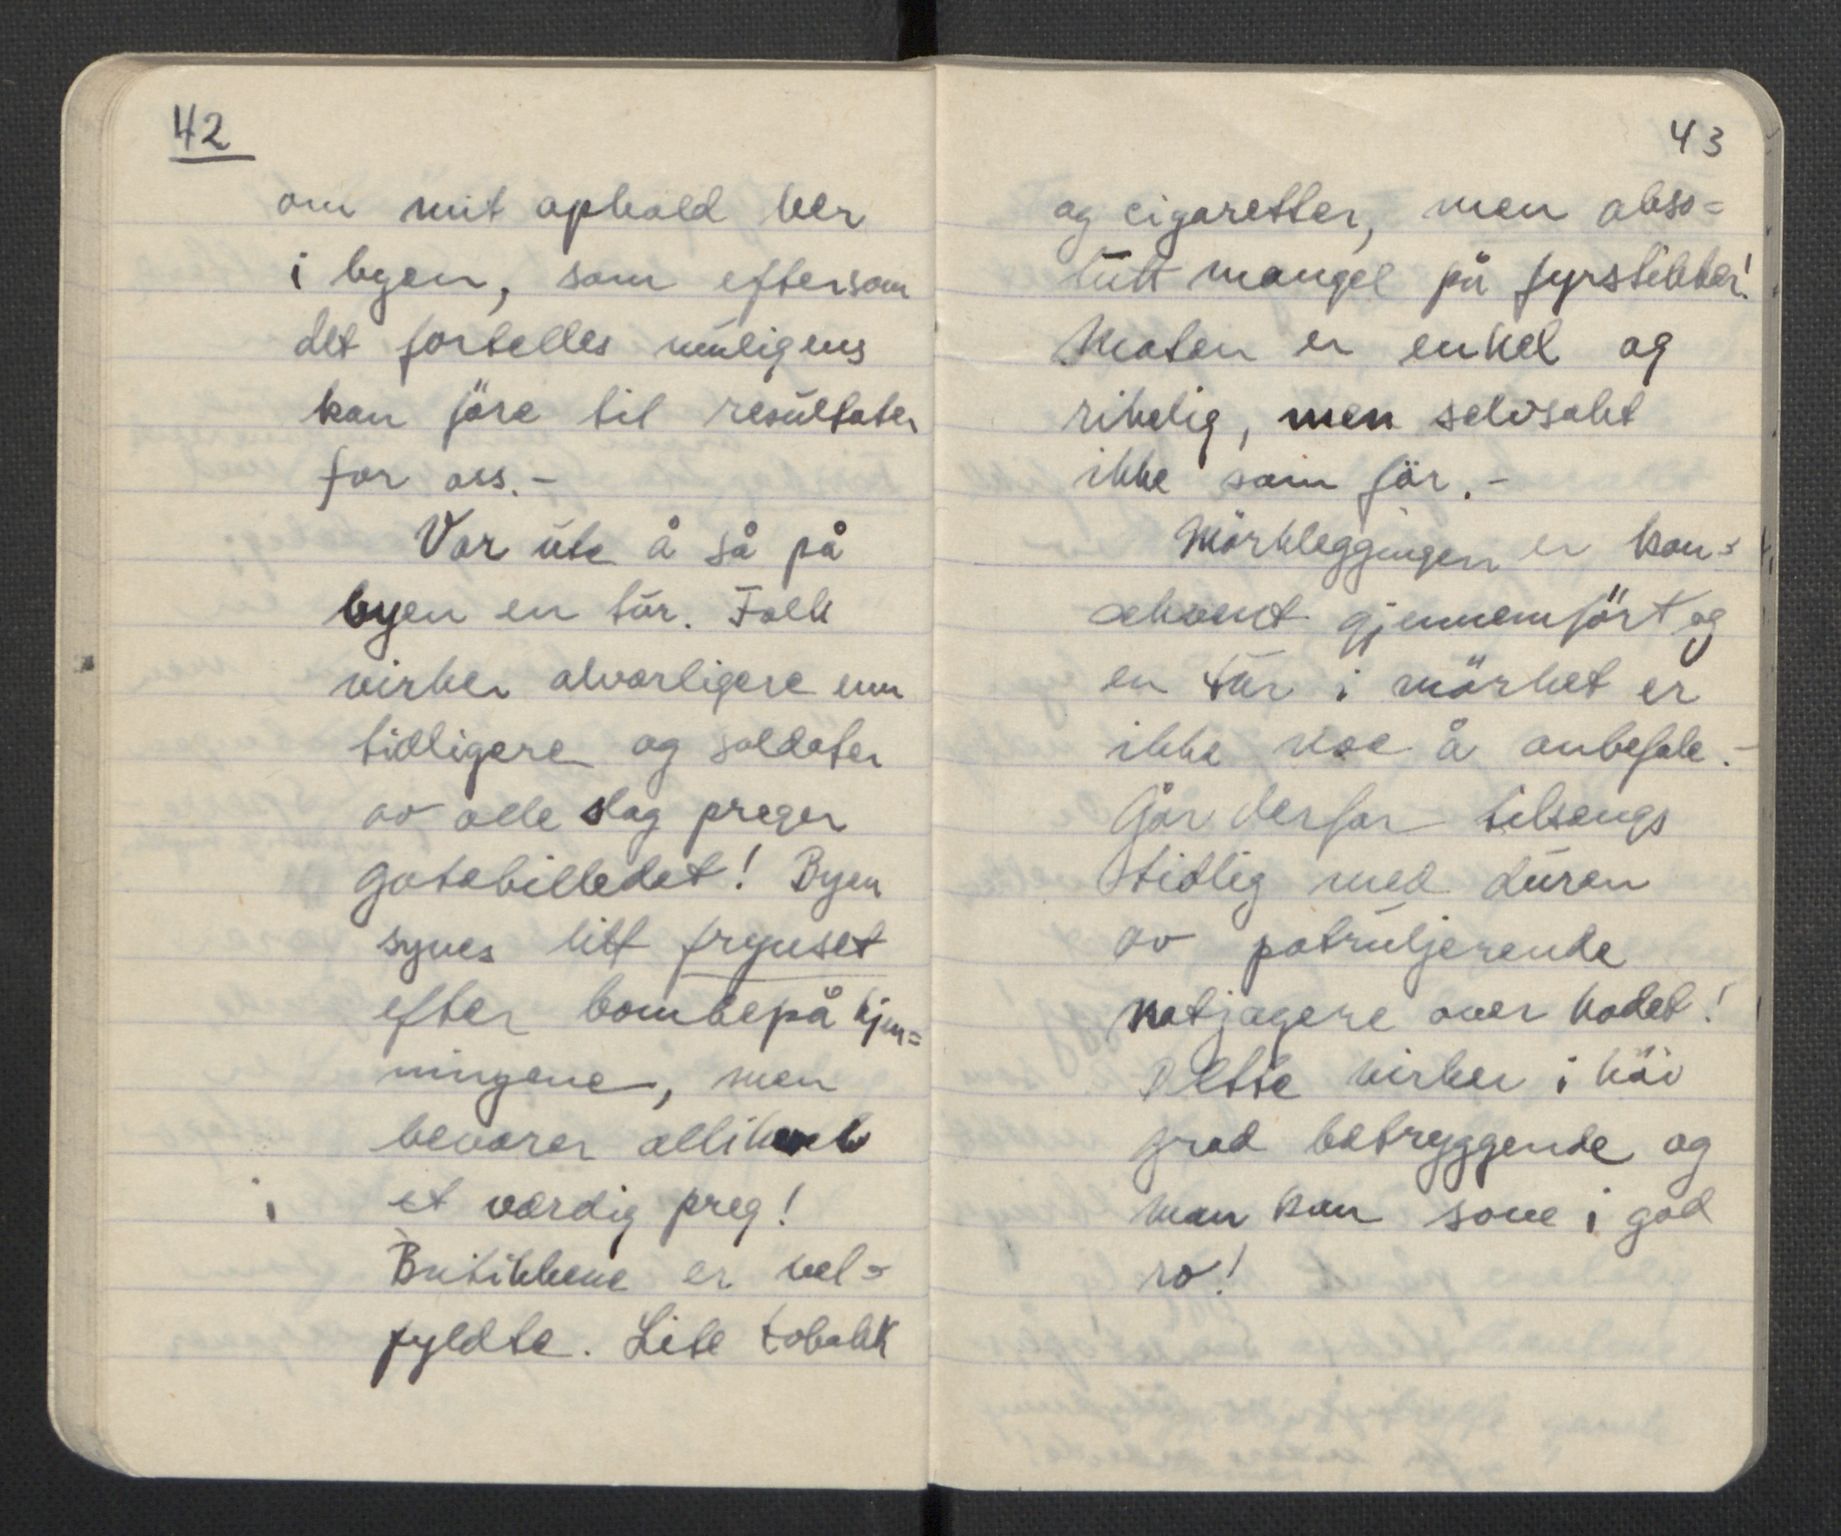 42
om mit ophold her
i byen, som eftersom
det fortelles muligens
kan före til resultater
for oss.-
Var ute å så på
byen en tur. Folk
virker alvorligere enn
tidligere og soldater
av alle slag preger
gatebilledet! Byen
synes litt frynset
efter bombepåkjen=
ningene, men
bevarer allikevel
et værdig preg!
Butikkene er vel=
fyldte. Lite tobakk
43
og cigaretter, men abso=
lutt mangel på fyrstikker!
Maten er enkel og
rikelig, men selvsakt
ikke som för.-
Mörkleggingen er kon=
sekvent gjennemfört og
en tur i mörket er
ikke noe å anbefale.-
Går derfor tilsengs
tidlig med duren
av patruljerende
natjagere over hodet!
Dette virker i höi
grad betryggende og
man kan sove i god
ro!